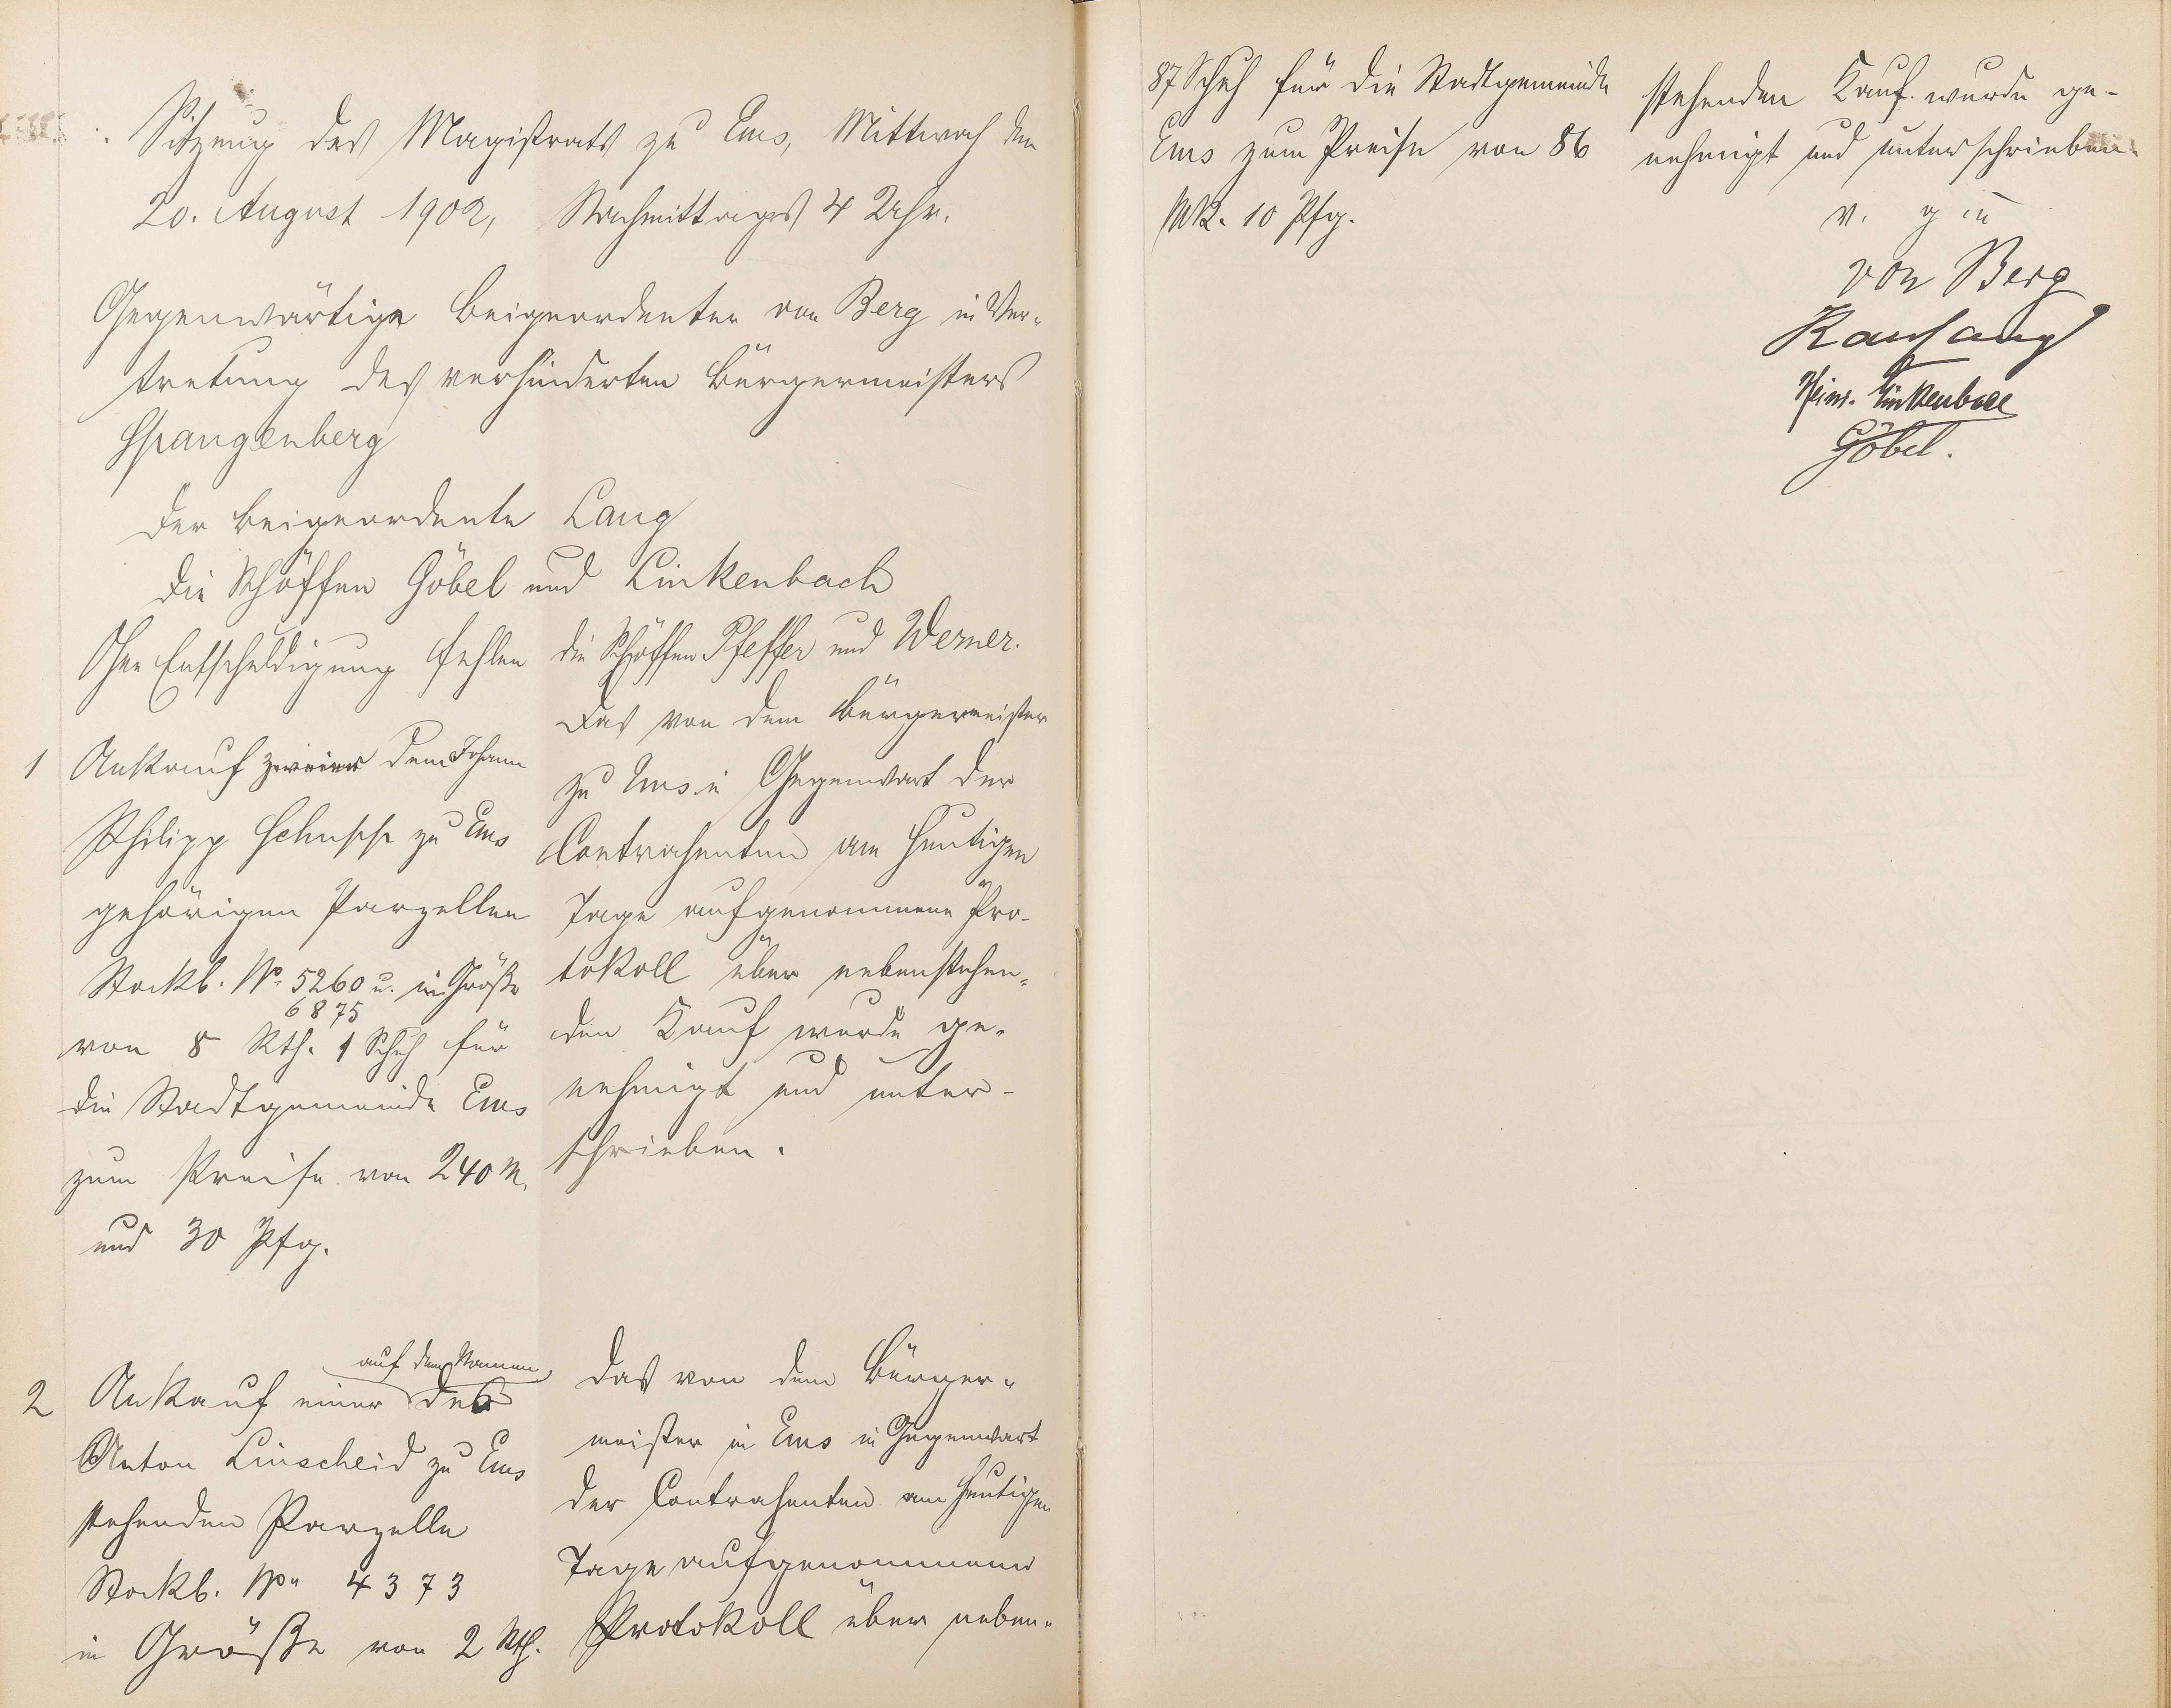 Sitzung des Magistrats zu Ems, Mittwoch den
20. August 1902, Nachmittags 4 Uhr.
Gegenwärtig: Beigeordneter von Berg in Ver-
tretung des verhinderten Bürgermeisters
Spangenberg
der Beigeordnete Lang
die Schöffen Göbel und Linkenbach
Ohne Entschuldigung fehlen die Schöffen Pfeffer und Werner.
1 Ankauf zweier dem Johann
Philipp Schupp zu Ems
gehörigen Parzellen
Stockb. No 5260 u. in Größe
6875
von 8 Rth. 1 Schuh für
die Stadtgemeinde Ems
zum Preise von 240 M.
und 30 Pfg.
Das von dem Bürgermeister
zu Ems in Gegenwart der
Contrahenten am heutigen
Tage aufgenommene Pro-
tokoll über nebenstehen-
den Kauf wurde ge-
nehmigt und unter-
schrieben.
auf dem Namen
2 Ankauf einer des
Anton Linscheid zu Ems
stehenden Parzelle
Stockb. No 4373
in Größe von 2 Rth.
Das von dem Bürger-
meister in Ems in Gegenwart
der Contrahenten am heutigen
Tage aufgenommene
Protokoll über neben-
87 Schuh für die Stadtgemeinde
Ems zum Preise von 86
Mk. 10 Pfg.
stehenden Kauf wurde ge-
nehmigt und unterschrieben.
v. g. u.
von Berg
Lang
Heinr. Linkenbach
Göbel.